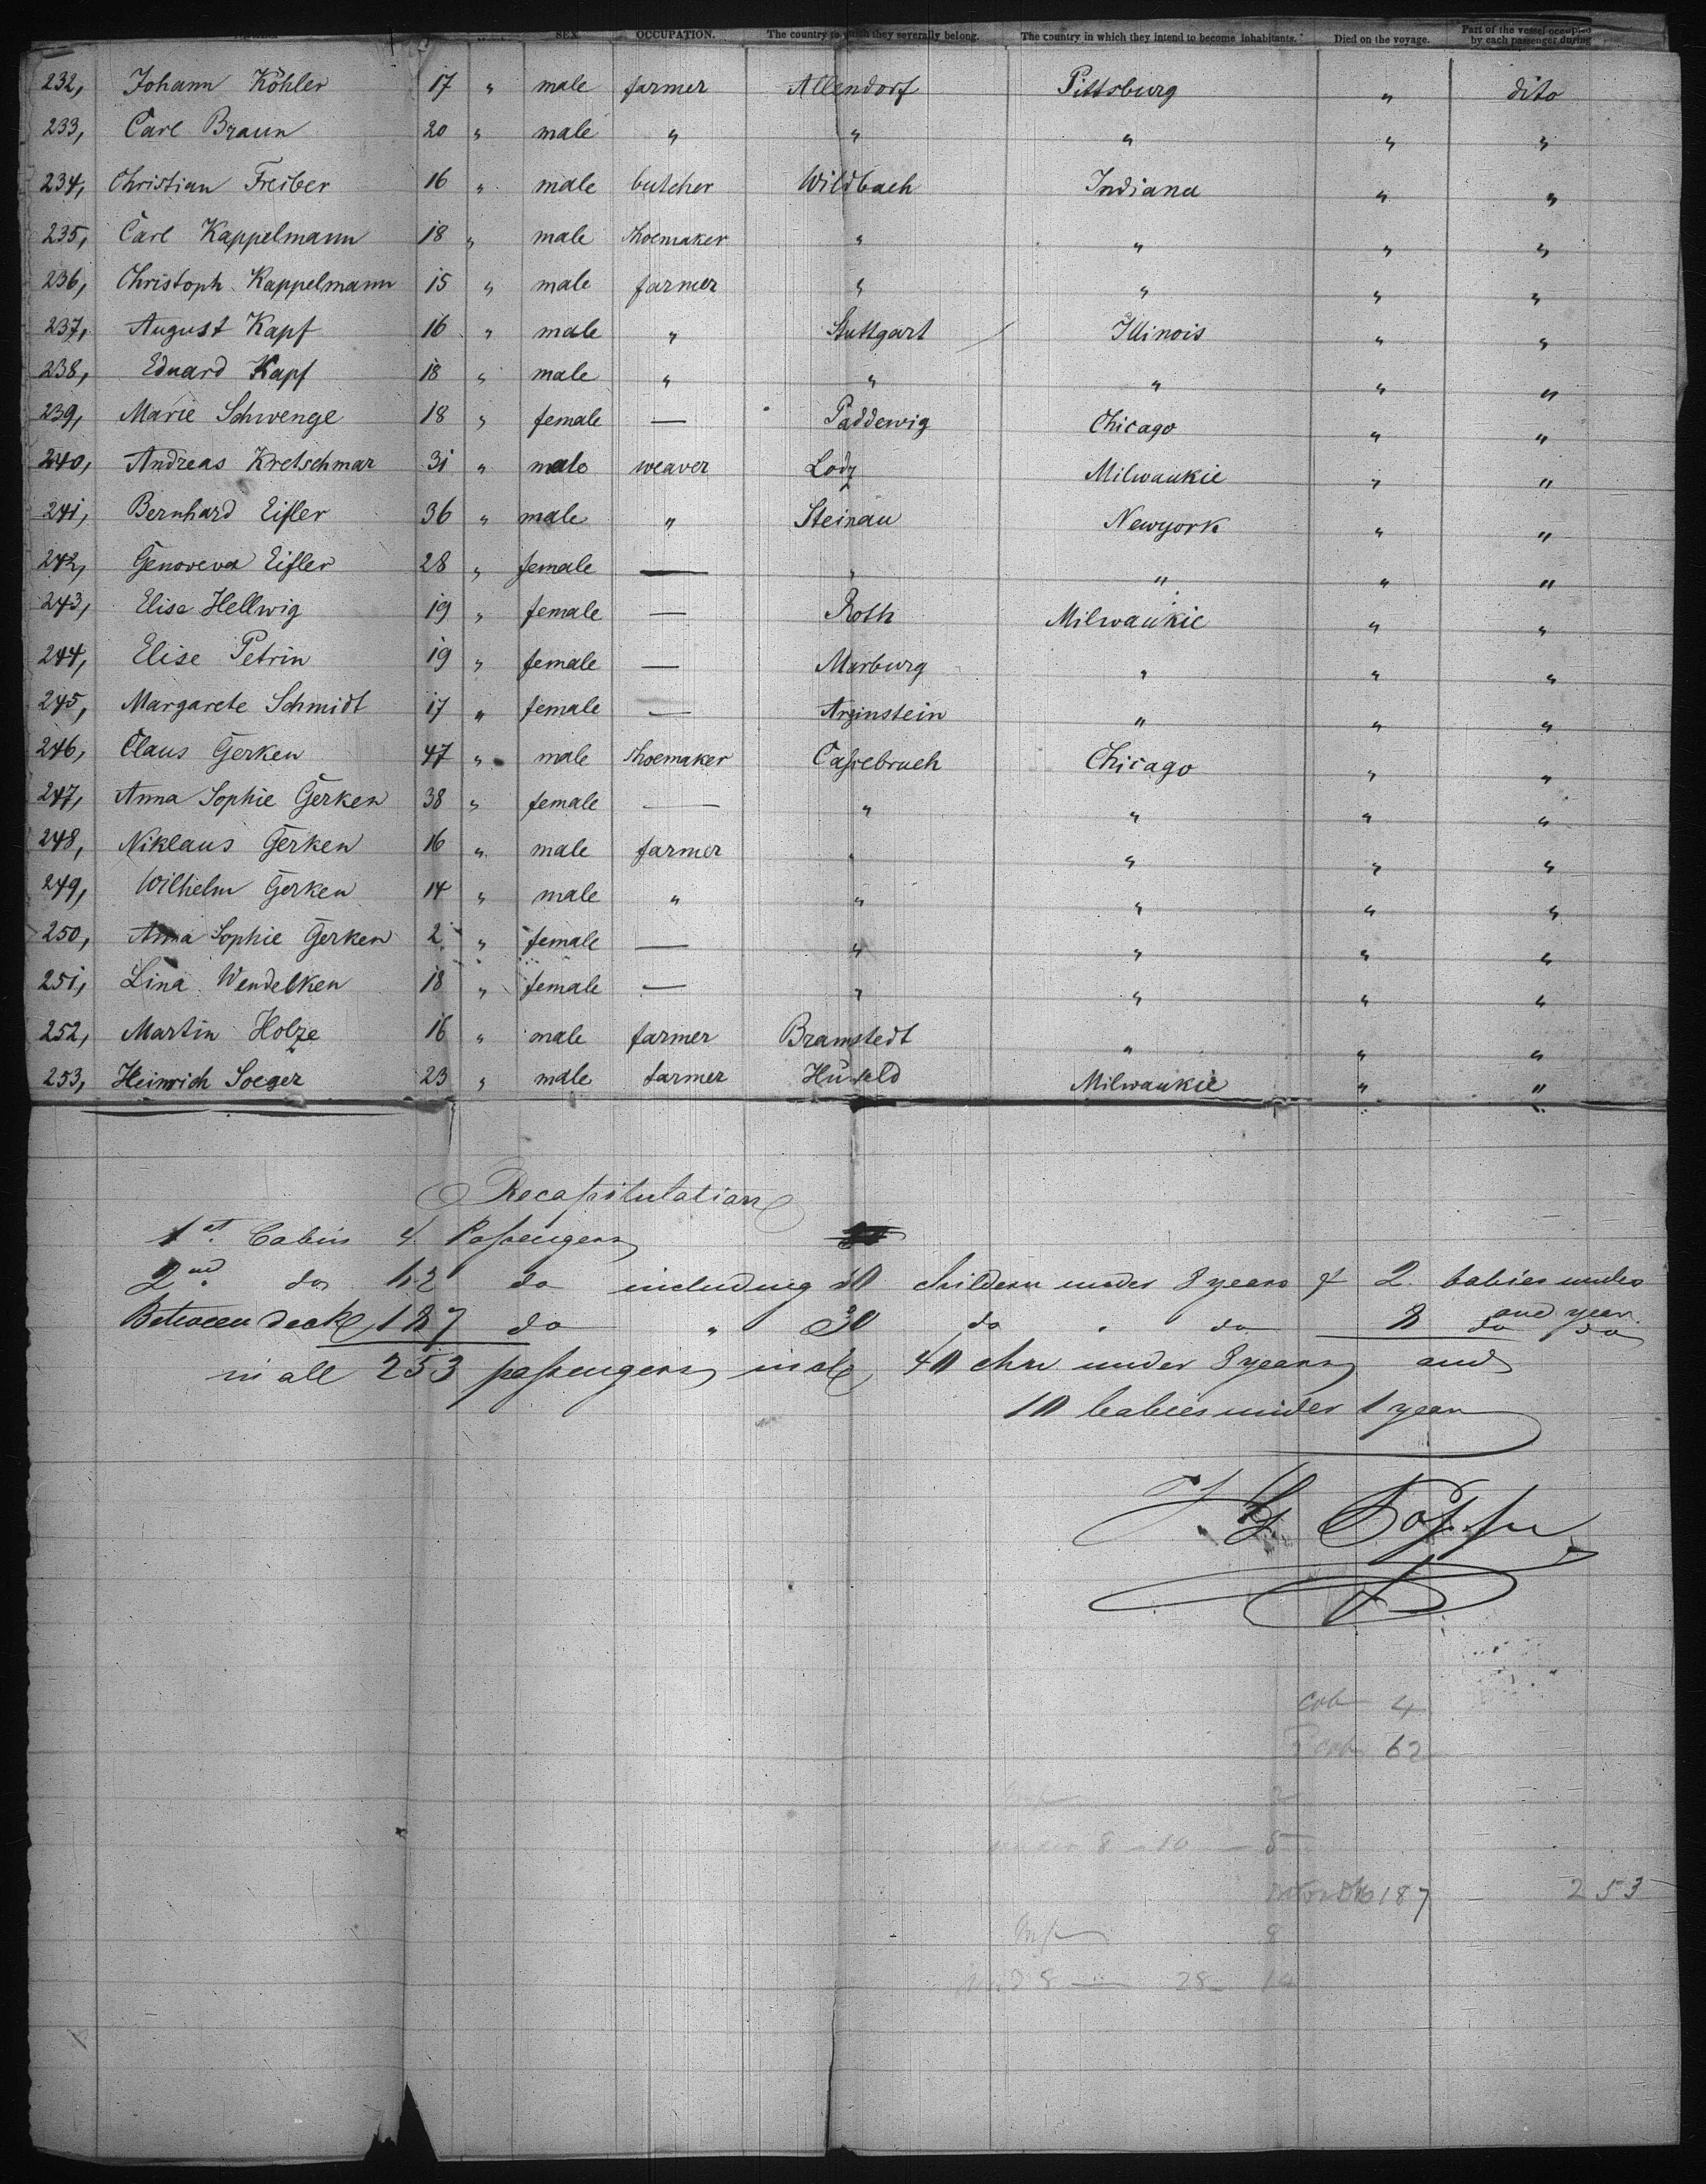 SEX. OCCUPATION. The country to which they severally belong. The country in which they intend to become inhabitants. Died on the voyage. Part of the vessel occupied by each passenger during
232, Johann Köhler 17 " male farmer Allendorf Pittsburg " dito
233, Carl Braun 20 " male " " " " "
234, Christian Freiber 16 " male butcher Wildbach Indiana " "
235, Carl Kappelmann 18 " male shoemaker " " " "
236, Christoph Kappelmann 15 " male farmer " " " "
237, August Kapf 16 " male " Stuttgart Illinois " "
238, Eduard Kapf 18 " male " " " " "
239, Marie Schwenge 18 " female — Paddewig Chicago " "
240, Andreas Kretschmar 31 " male weaver Lodz Milwaukie " "
241, Bernhard Eifler 36 " male " Steinau Newyork " "
242, Genoveva Eifler 28 " female — " " " "
243, Elise Hellwig 19 " female — Roth Milwaukie " "
244, Elise Petrin 19 " female — Marburg " " "
245, Margarete Schmidt 17 " female — Arginstein " " "
246, Claus Gerken 47 " male shoemaker Cassebruch Chicago " "
247, Anna Sophie Gerken 38 " female — " " " "
248, Niklaus Gerken 16 " male farmer " " " "
249, Wilhelm Gerken 14 " male " " " " "
250, Anna Sophie Gerken 2 " female — " " " "
251, Lina Wendelken 18 " female — " " " "
252, Martin Holze 16 " male farmer Bramstedt " " "
253, Heinrich Soeger 23 " male farmer Hünfeld Milwaukie " "
Recapitulation
1st Cabin 4 Passengers
2nd do 62 do including 10 children under 8 years & 2 babies under one year
Between deck 187 do " 30 do " do 8 do do
in all 253 passengers incl 40 chn under 8 years and
10 babies under 1 year
cab 4
2 cab 62
2
under 8 - 10 - 5
187 - 253
Inf 9
und 8 — 28 14